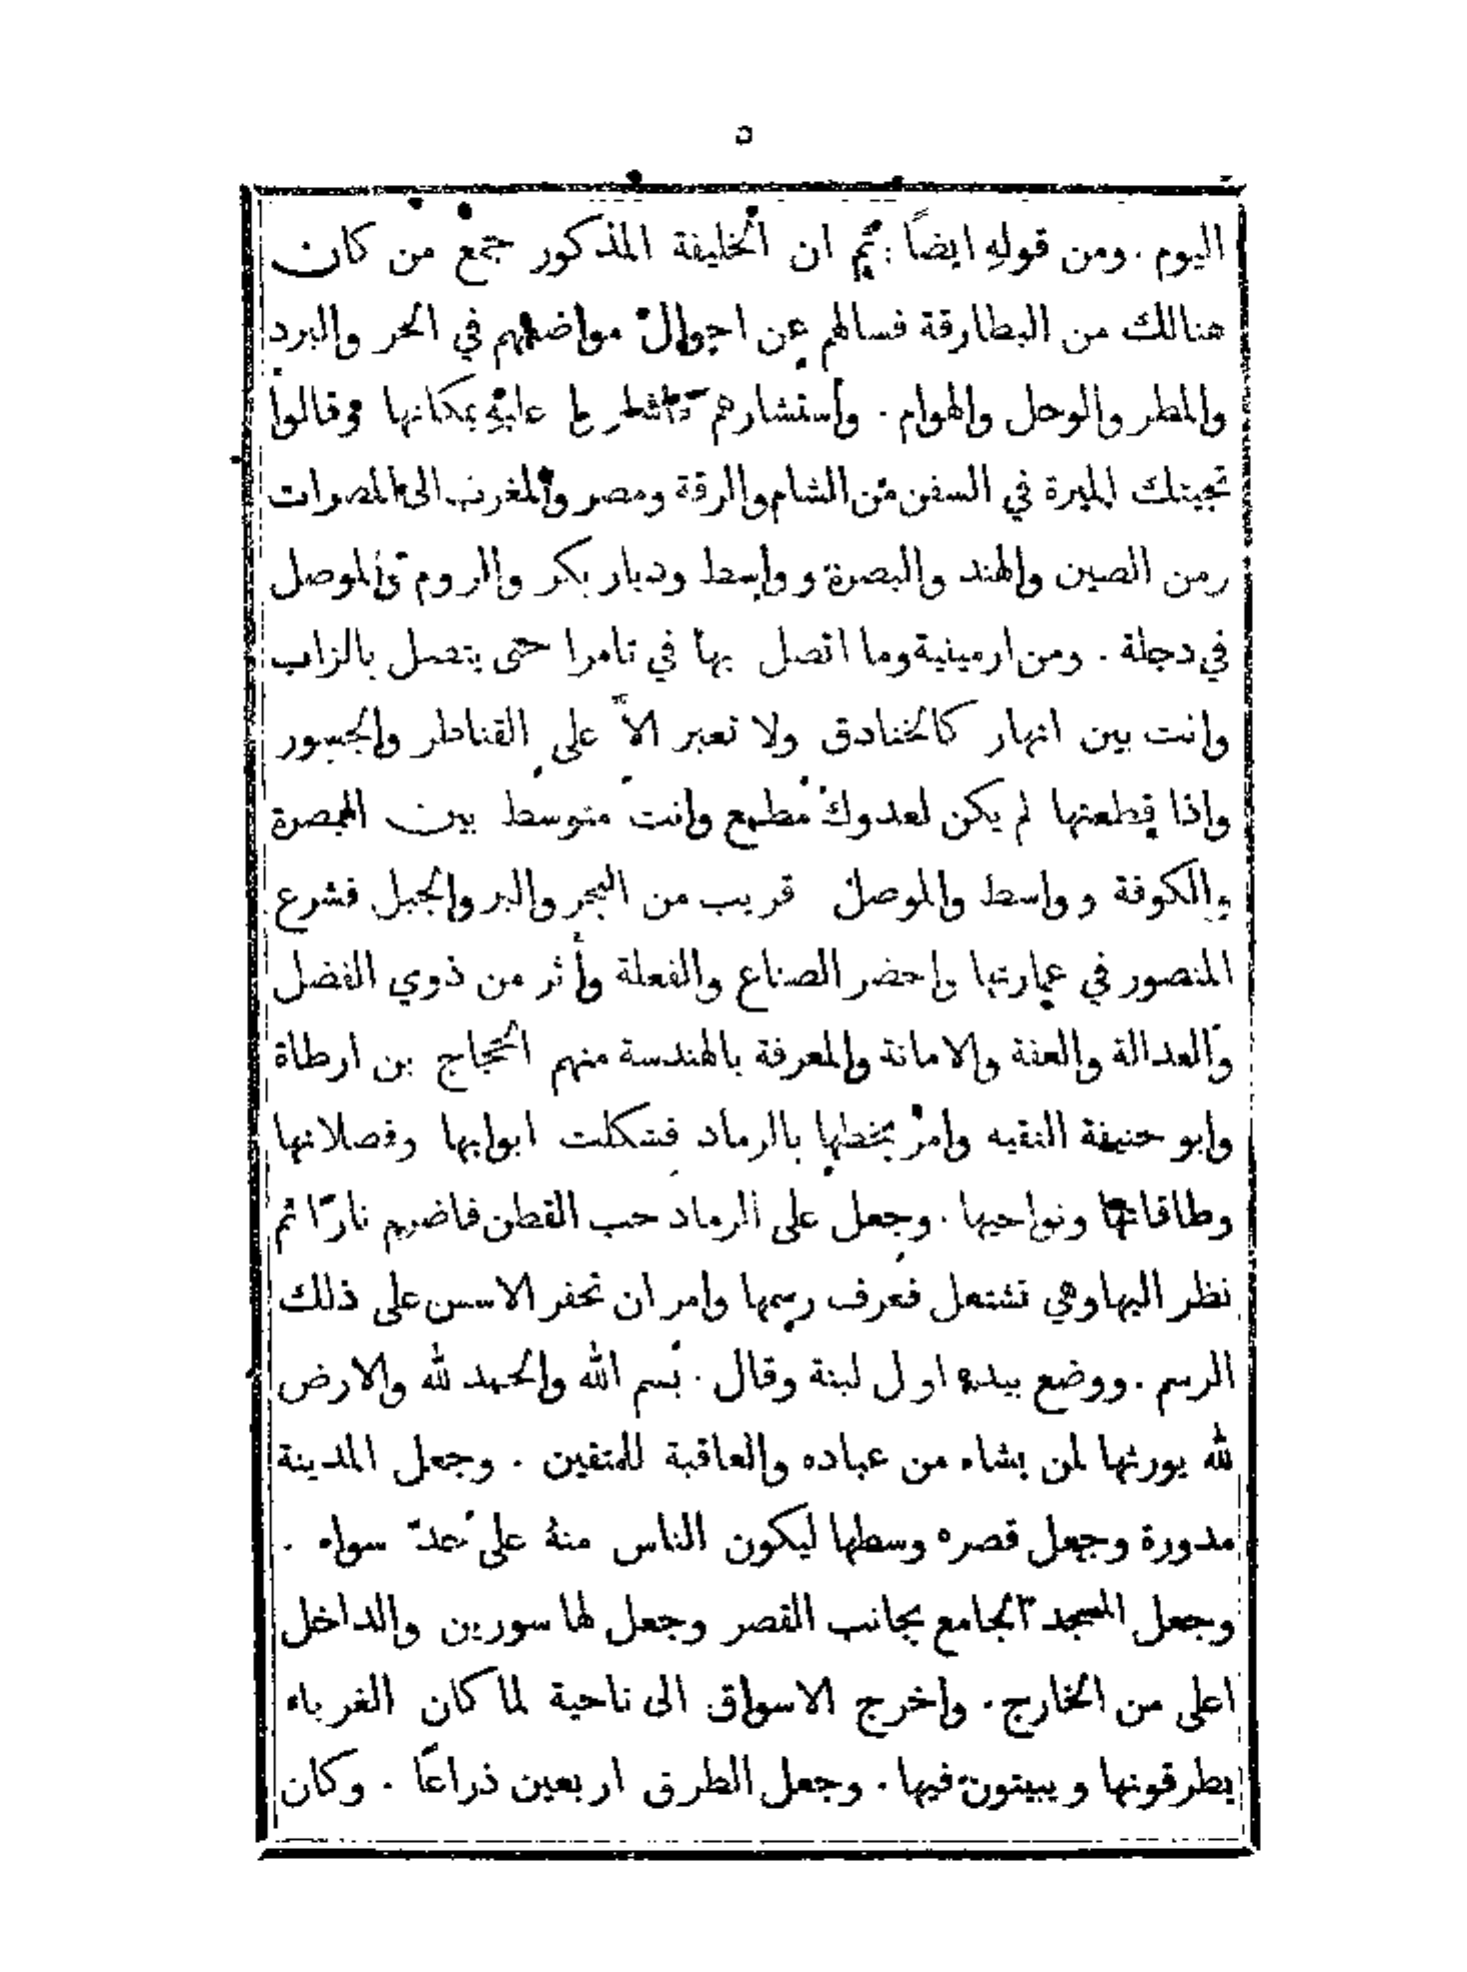 ٥
اليوم . ومن قولهِ ايضاً : ثم ان الخليفة المذكور جمع من كان
هنالك من البطارقة فسالهم عن احوال مواضعهم في الحر والبرد
والمطر والوحل والهوام . واستشارهم عليهِ بمكانها وقالوا
تجيئك الميرة في السفن من الشام والرقة ومصر والمغرب الى المصرات
ومن الصين والهند والبصرة وواسط وديار بكر والروم والموصل
في دجلة . ومن ارمينية وما اتصل بها في تامرا حتى يتصل بالزاب
وانت بين انهار كالخنادق ولا تعبر الاَّ على القناطر والجسور
واذا قطعتها لم يكن لعدوك مطمع وانت متوسط بين البصرة
والكوفة وواسط والموصل قريب من البحر والبر والجبل فشرع
المنصور في عمارتها واحضر الصناع والفعلة وأثر من ذوي الفضل
والعدالة والعفة والامانة والمعرفة بالهندسة منهم الحجاج بن ارطاة
وابو حنيفة الفقيه وامر بخطها بالرماد فشكلت ابوابها وفصلاتها
وطاقاتها ونواحيها . وجعل على الرماد حب القطن فاضرم نارًا ثم
نظر اليها وهي تشتعل فعرف رسمها وامر ان تحفر الاسس على ذلك
الرسم . ووضع بيده اول لبنة وقال . بسم الله والحمد لله والارض
لله يورثها لمن يشاء من عباده والعاقبة للمتقين . وجعل المدينة
مدورة وجعل قصره وسطها ليكون الناس منهُ على حدّ سواء .
وجعل المسجد الجامع بجانب القصر وجعل لها سورين والداخل
اعلى من الخارج . واخرج الاسواق الى ناحية لما كان الغرباء
يطرقونها ويبيتون فيها . وجعل الطرق اربعين ذراعًا . وكان